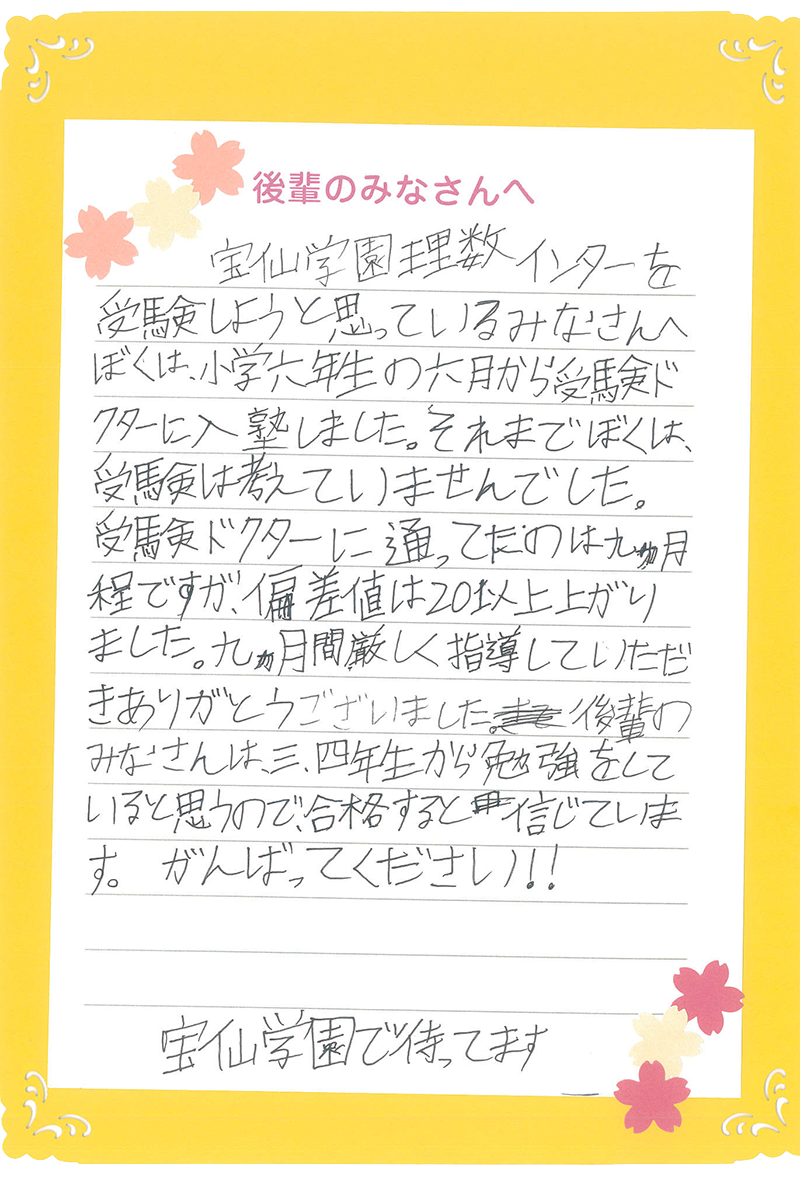 後輩のみなさんへ
宝仙学園理数インターを
受験しようと思っているみなさんへ
ぼくは、小学六年生の六月から受験ド
クターに入塾しました。それまでぼくは、
受験は考えていませんでした。
受験ドクターに通ってたのは九ヵ月
程ですが、偏差値は20以上上がり
ました。九ヵ月間厳しく指導していただ
きありがとうございました。後輩の
みなさんは、三、四年生から勉強をして
いると思うので、合格すると信じていま
す。がんばってください!!
宝仙学園で待ってます